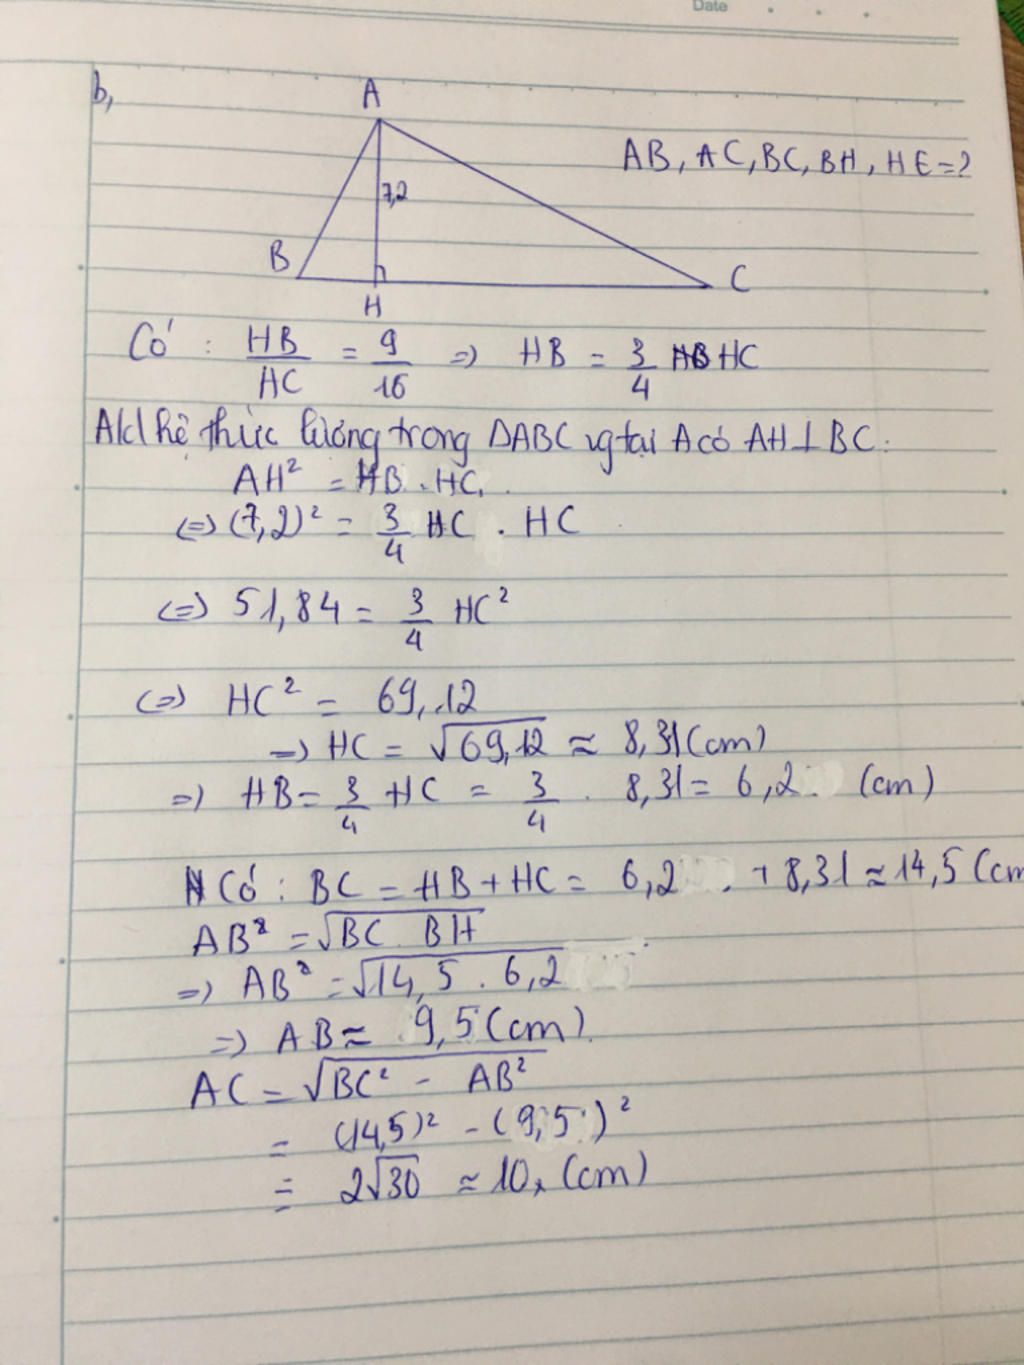 Date
b,
A
AB, AC, BC, BH, HE = ?
7,2
B
C
H
Có : HB/HC = 9/16 => HB = 3/4 HC
Ald hệ thức lượng trong ΔABC vg tại A có AH ⊥ BC :
AH² = HB . HC
<=> (7,2)² = 3/4 HC . HC
<=> 51,84 = 3/4 HC²
<=> HC² = 69,12
=> HC = √69,12 ≈ 8,31 (cm)
=> HB = 3/4 HC = 3/4 . 8,31 = 6,2 (cm)
Có : BC = HB + HC = 6,2 + 8,31 ≈ 14,5 (cm
AB² = √BC . BH
=> AB² = √14,5 . 6,2
=> AB ≈ 9,5 (cm)
AC = √BC² - AB²
= (14,5)² - (9,5)²
= 2√30 ≈ 10, (cm)